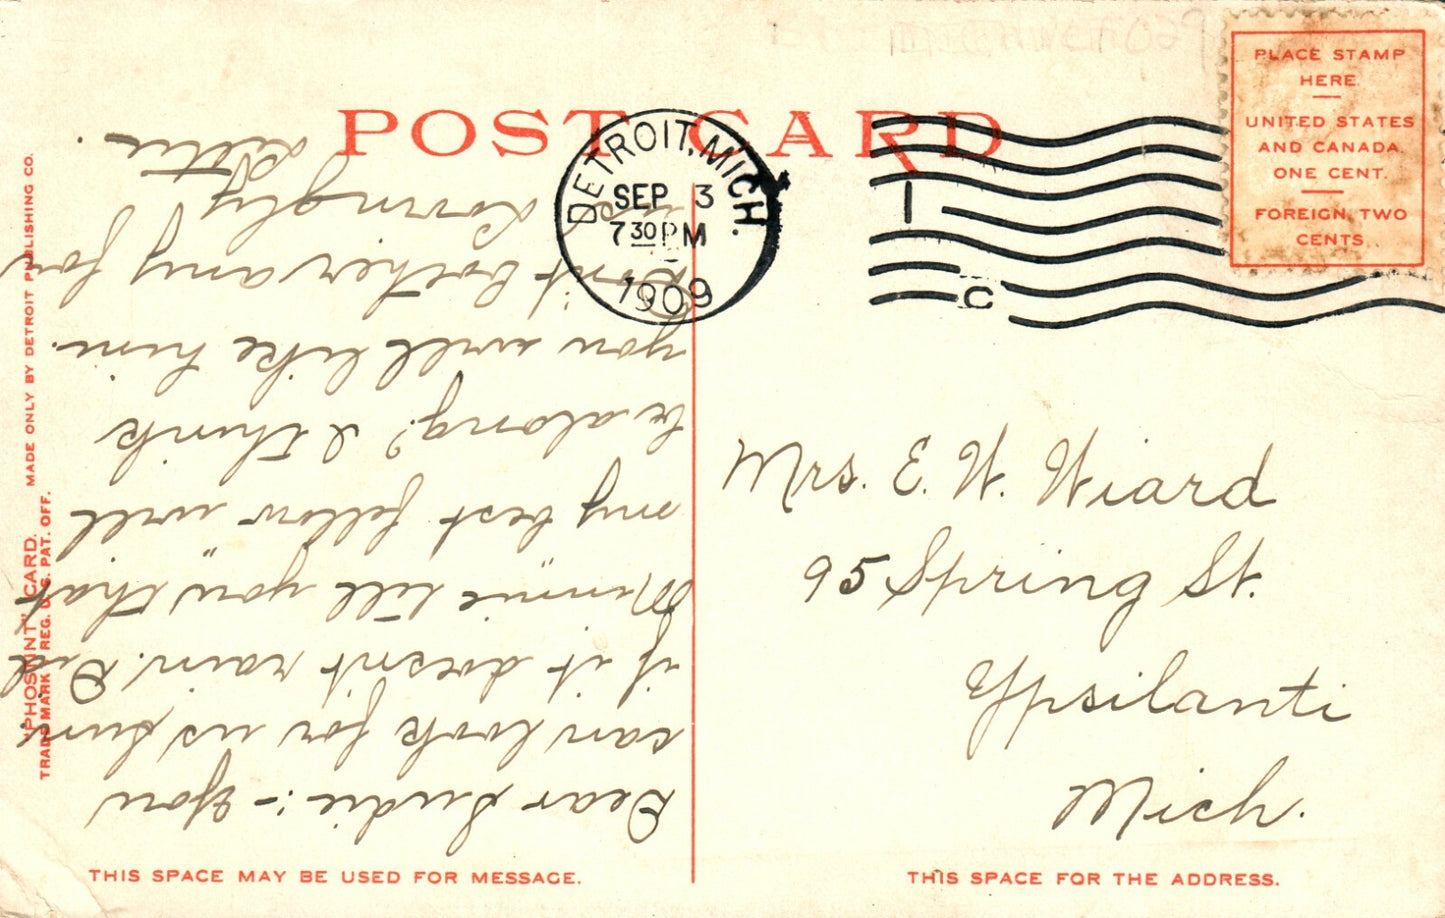 POST CARD
PLACE STAMP
HERE
UNITED STATES
AND CANADA
ONE CENT.
FOREIGN, TWO
CENTS
DETROIT, MICH.
SEP 3
7 30 PM
1909
1
C
Dear Sudie:- You
can look for us Sun.
if it doesn't rain. Did
Minnie tell you that
"my best fellow" will
be along? I think
you will like him.
Don't bother any for
us. Lovingly
Mrs. E. W. Wiard
95 Spring St.
Ypsilanti
Mich.
"PHOSTINT" CARD. MADE ONLY BY DETROIT PUBLISHING CO.
TRADE MARK REG. U.S. PAT. OFF.
THIS SPACE MAY BE USED FOR MESSAGE.
THIS SPACE FOR THE ADDRESS.